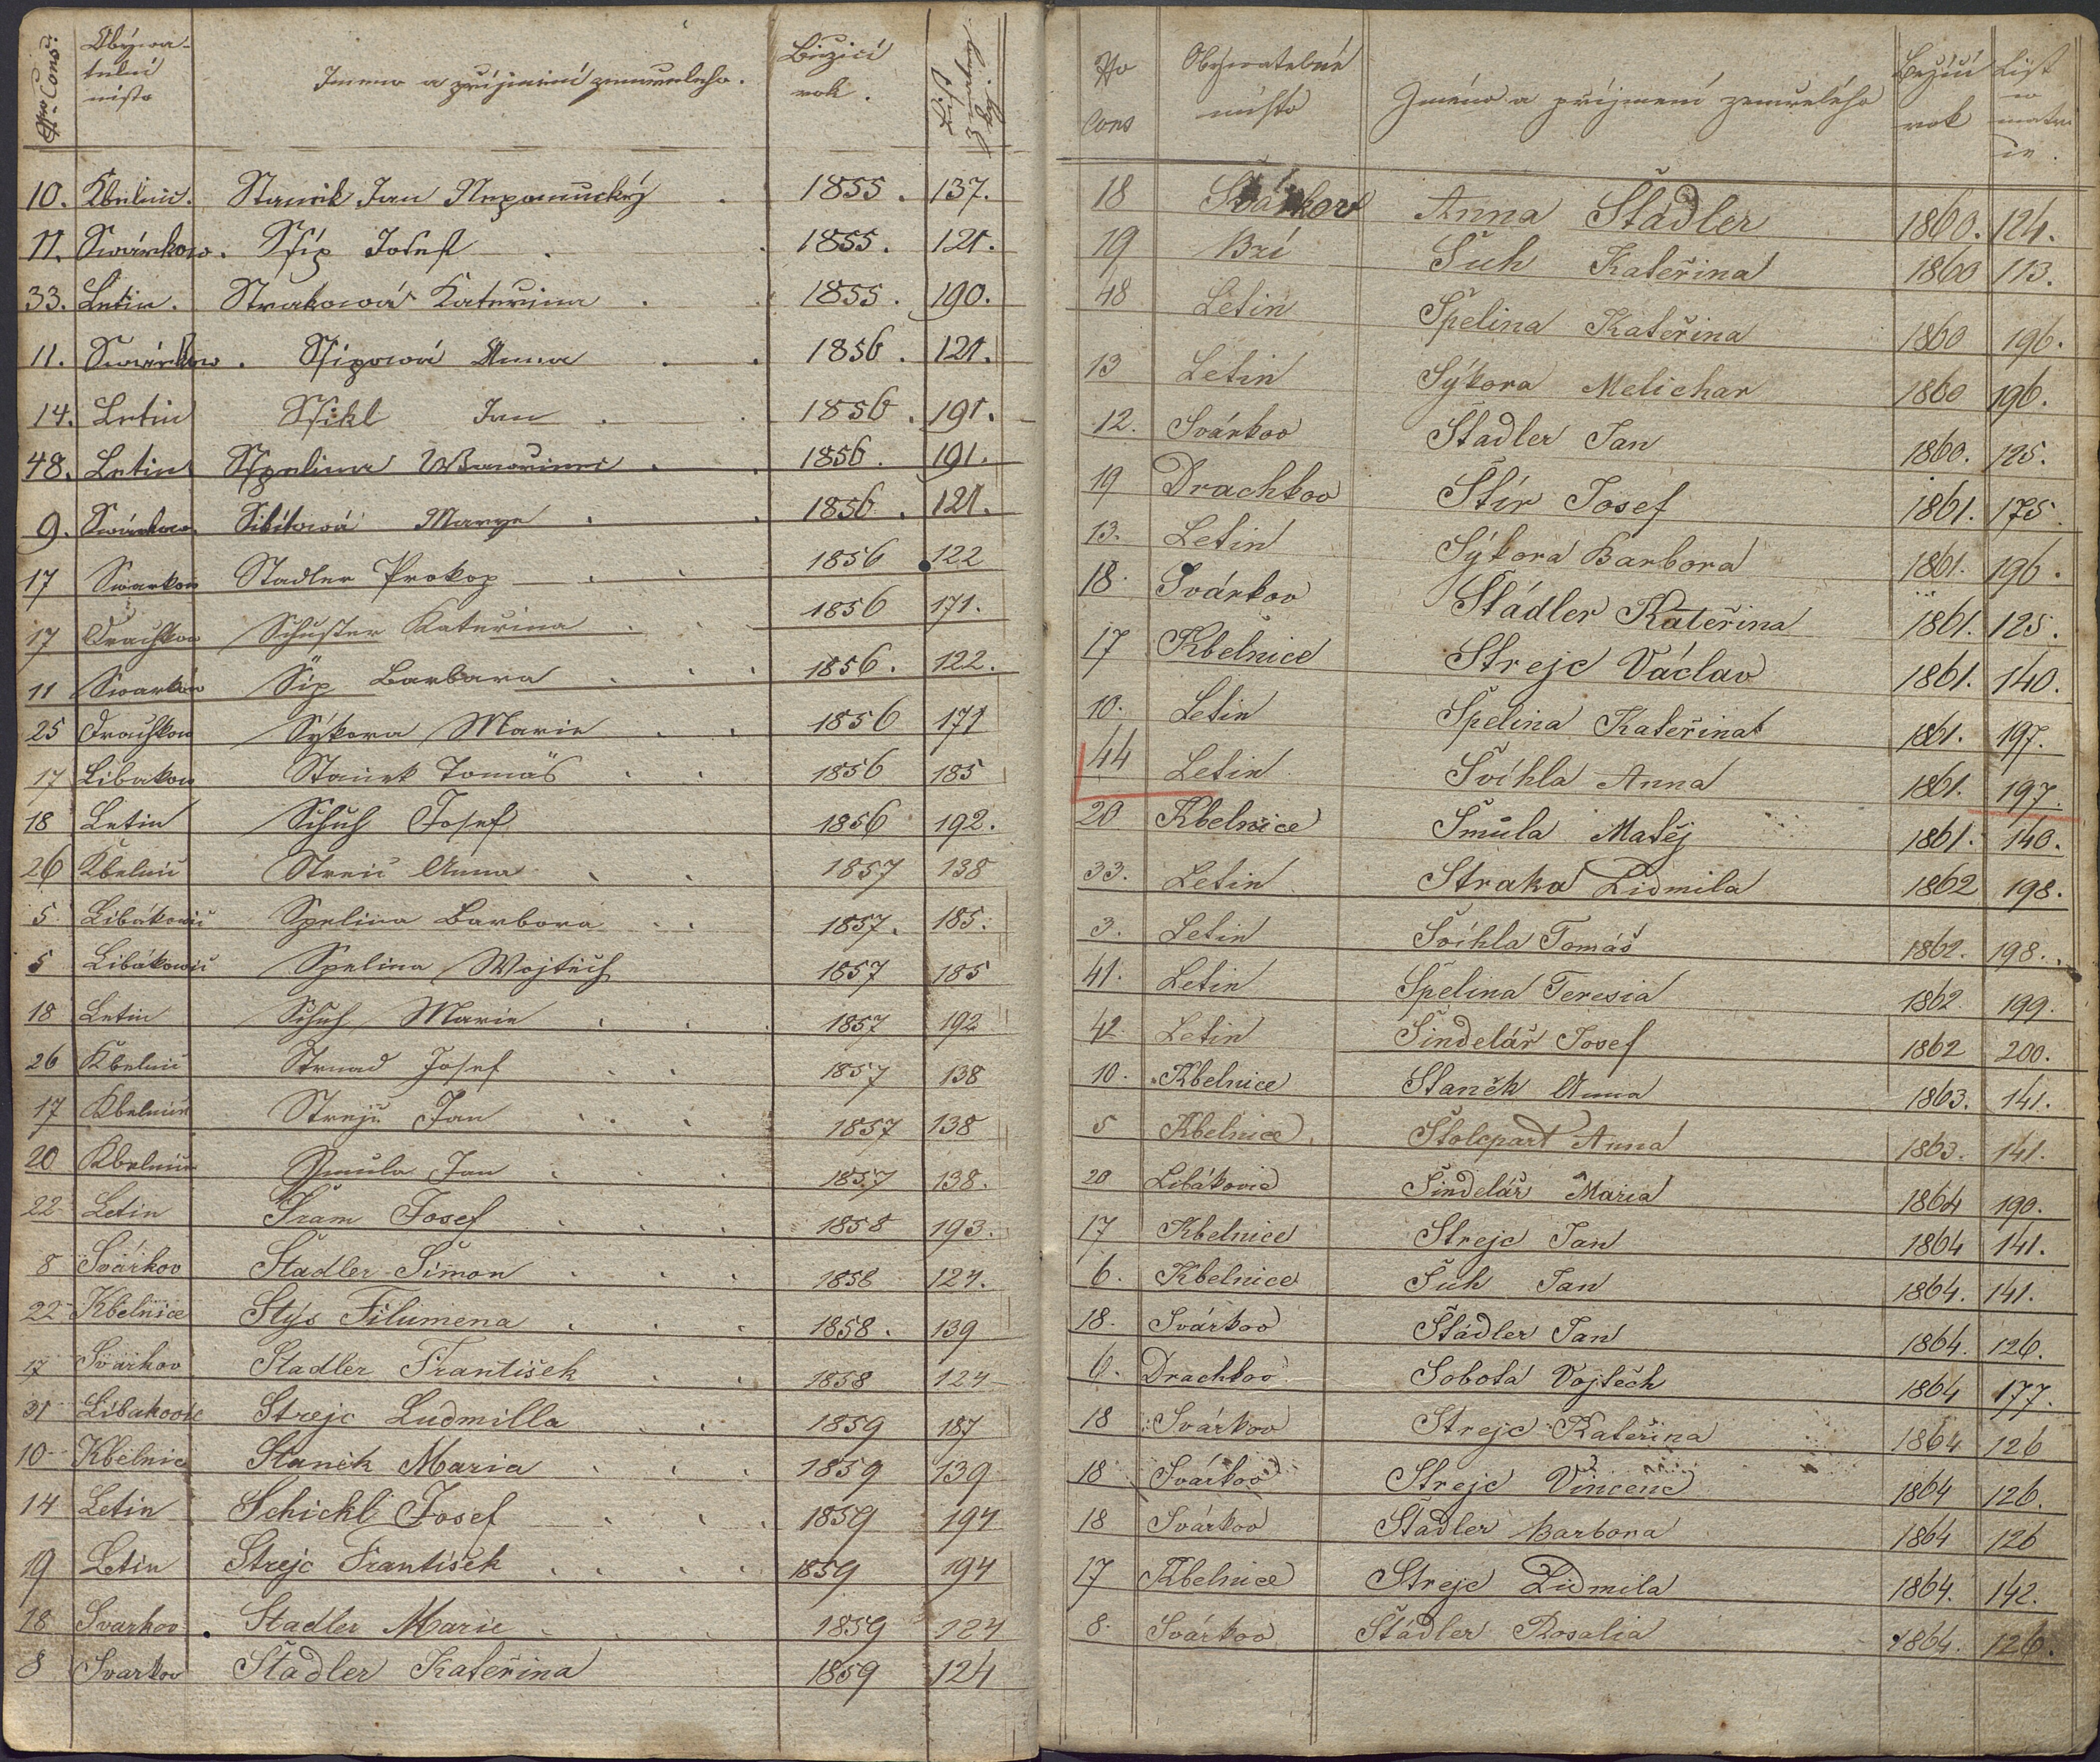 Nro Cons: Obýwatelní místo Jmeno a příjmení zemřeleho. Bižicí rok.
10. Kbelnic. Staniek Jan Nepomucký . 1855. 137.
11. Swárkow. Sſíp Josef . 1855. 121.
33. Letin. Strakowá Kateřina . 1855. 190.
11. Swárkow. Sſípowá Anna . 1856. 121.
14. Letin Sſikl Jan . 1856. 191.
48. Letin Sſpelina . 1856. 191.
9. Swárkow. Marye . 1856. 121.
17 Swarkow Stadler Prokop . 1856 122
17 Drachkow Schuster Kateřina . 1856 171.
11 Swarkow Šíp Barbara . 1856. 122.
25 Drachkow Sýkora Marie . 1856 171
17 Libakow Staniek Tomáš . 1856 185
18 Letin Schuh Josef 1856 192.
26 Kbelnic Streic Anna . 1857 138
5 Libákowic Spelina Barbora . 1857. 185.
5 Libákowic Spelina Wojtěch 1857 185
18 Letin Schuh Marie . 1857 192
26 Kbelnic Strnad Josef . 1857 138
17 Kbelnic Strejc Jan . 1857 138
20 Kbelnice Smula Jan . 1857 138.
22 Letin Šram Josef . 1858 193.
8 Svárkov Stadler Šimon . 1858 124.
22 Kbelnice Stys Filumena . 1858. 139
17 Svárkov Stadler František . 1858 124
31 Libakovic Strejc Ludmilla . 1859 187
10 Kbelnic Staněk Maria . 1859 139
14 Letin Schickl Josef . 1859 194
19 Letin Strejc František . 1859 194
18 Svarkov. Stadler Marie . 1859 124
8 Svarkov Stadler Kateřina 1859 124
No Cons Obÿvatelné místo Jméno a příjmení zemřelého Bežící rok List w matrice.
18 Svárkov Anna Štádler 1860. 124.
19 Bzí Šuh Kateřina 1860 113.
48 Letin Špelina Kateřina 1860 196.
13 Letin Sýkora Melichar 1860 196.
12. Svárkov Štadler Jan 1860. 125.
19 Drachkov Štír Josef 1861. 175.
13. Letin Sýkora Barbora 1861. 196.
18. Svárkov Štádler Kateřina 1861. 125.
17 Kbelnice Strejc Václav 1861. 140.
10. Letin Špelina Kateřina 1861. 197.
44 Letin Švíhla Anna 1861. 197.
20 Kbelnice Šmůla Matěj 1861. 140.
33. Letin Straka Lidmila 1862 198.
3. Letin Švíhla Tomáš 1862. 198.
41. Letin Špelina Teresia 1862 199.
42 Letin Šindelář Josef 1862 200.
10. Kbelnice Staněk Anna 1863. 141.
5 Kbelnice Štolcpart Anna 1863. 141.
20 Libákovic Šindelář Maria 1864 190.
17 Kbelnice Strejc Jan 1864 141.
6. Kbelnice Šuh Jan 1864. 141.
18. Svárkov Štádler Jan 1864. 126.
6. Drachkov Sobota Vojtěch 1864 177.
18 Svárkov Strejc Kateřina 1864 126
18 Svárkov Strejc Vincenc 1864 126.
18 Svárkov Štadler Barbora 1864 126
17 Kbelnice Strejc Lidmila 1864. 142.
8. Svárkov Štádler Rosalia 1864. 126.